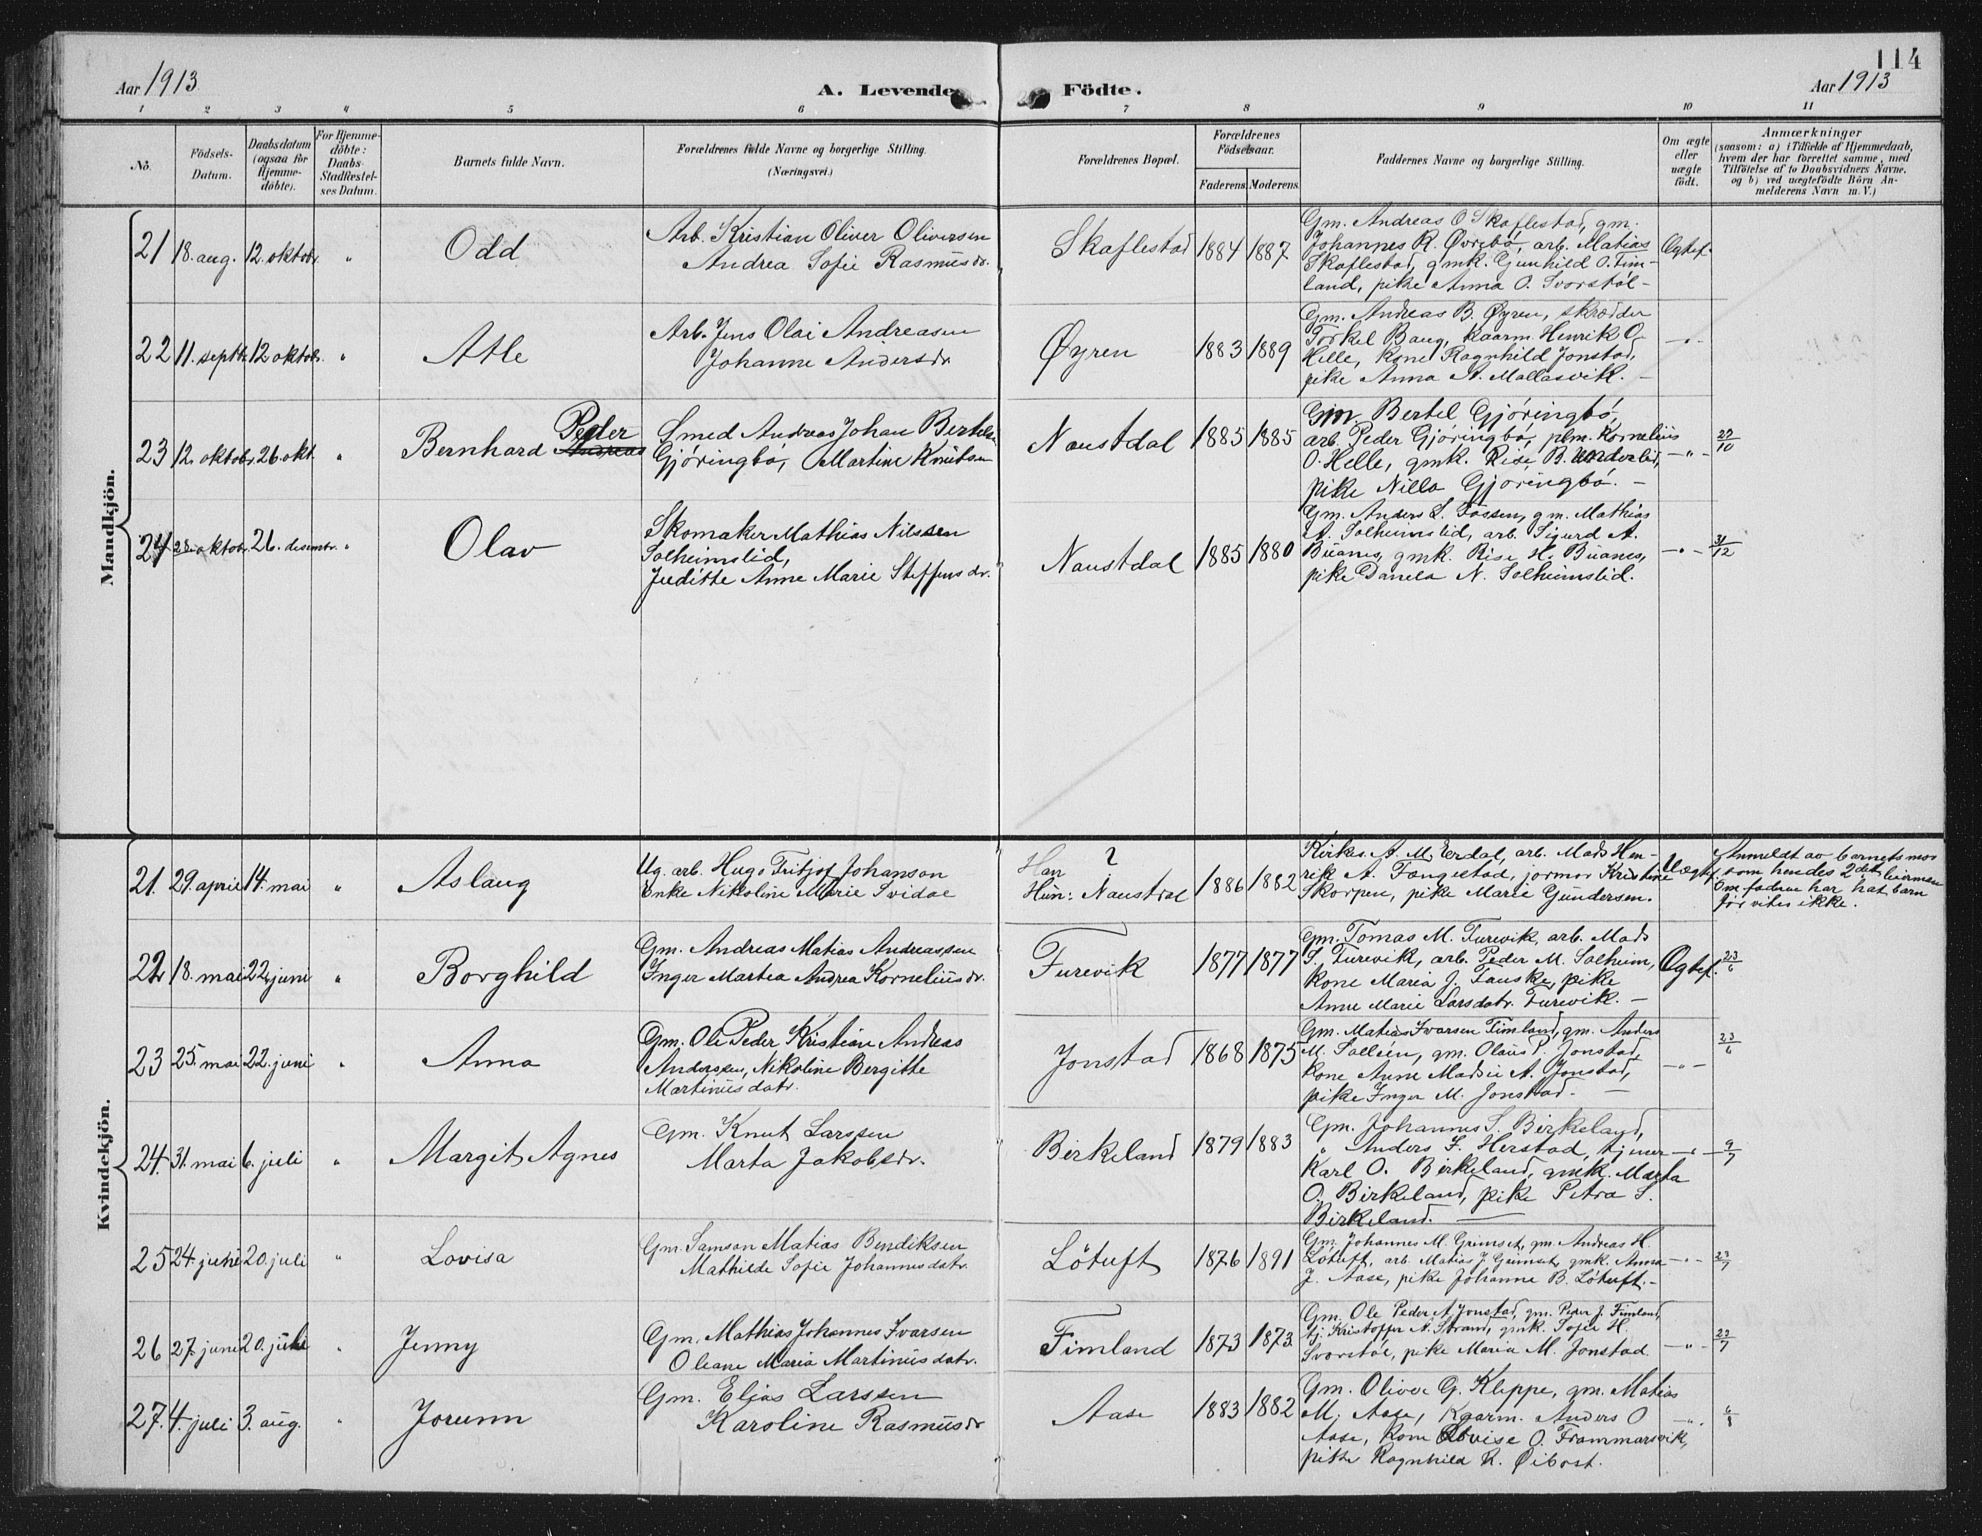 114
Aar 1913
A. Levende
Födte.
Aar 1913
1 2 3 4 5 6 7 8 9 10 11
No.
Födsels-
Datum.
Daabsdatum
(ogsaa for
Hjemme-
döbte).
For Hjemme-
döbte:
Daabs-
Stadfæstel-
ses Datum.
Barnets fulde Navn.
Forældrenes fulde Navne og borgerlige Stilling.
(Næringsvei.)
Forældrenes Bopæl.
Forældrenes
Födselsaar.
Faderens. Moderens.
Faddernes Navne og borgerlige Stilling.
Om ægte
eller
uægte
födt.
Anmærkninger
(saasom: a) i Tilfælde af Hjemmedaab,
hvem der har forrettet samme, med
Tilföielse af to Daabsvidners Navne,
og b) ved uægtefödte Börn An-
melderens Navn m. V.)
Mandkjön.
21 18. aug. 12. oktobr. "
Odd
Arb. Kristian Oliver Oliversen
Andrea Sofie Rasmusdr.
Skaflestad 1884 1887
Gm. Andreas O Skaflestad, gm.
Johannes R. Øvrebö, arb. Matias
Skaflestad, gmk. Gunhild O. Tim-
land, pike Anna O. Svorstöl -
Egtef.
22 11. septbr. 12 oktobr. "
Atle
Arb. Jens Olai Andreasen
Johanne Andersdr.
Øyren 1883 1889
Gm. Andreas B. Øyren, skrædder
Torkel Baug, kaarm. Henrik O.
Helle, kone Ragnhild Jonstad,
pike Anna A. Mallasvik. -
- " -
23 12. oktobr. 26. okt. "
Bernhard Peder
Smed Andreas Johan Bertels.
Gjöringbö, Martine Knutsen
Naustdal 1885 1885
Gm. Bertel Gjöringbö,
arb. Peder Gjöringbö, plm. Kornelius
O. Helle, gmk. Rise B. Underlid,
pike Nilla Gjöringbö. -
- " -
29/10
24 28. oktobr. 26. desembr. "
Olav
Skomaker Mathias Nilssen
Solheimslid,
Juditte Anne Marie Steffensdr.
Naustdal 1885 1880
Gm. Anders L. Fossen, gm. Mathias
A. Solheimslid, arb. Sigurd A.
Buanes, gmk. Rise H. Buanes,
pike Daniela N. Solheimslid.
- " -
31/12
Kvindekjön.
21. 29. april 14. mai "
Aslaug
Ug. arb. Hugo Fritjof Johanson
Enke Nikoline Marie Svidal
Han ?
Hun: Naustdal 1886 1882
Kirkes. A. M. Erdal, arb. Mads Hen-
rik A. Fangestad, jormor Kristine
Skorpen, pike Marie Gundersen.
Uægtef.
Anmeldt av barnets mor
som hendes 2det leierm.
Om faderen har hat barn
för vites ikke.
22 18. mai 22 juni "
Borghild
Gm. Andreas Matias Andreassen
Inger Martea Andrea Korneliusdr.
Furevik 1877 1877
Gm. Tomas M. Furevik, arb. Mads
S. Furevik, arb. Peder M. Solheim,
kone Maria J. Fauske, pike
Anne Marie Larsdatr. Furevik. -
Egtef.
23/6
23 25. mai 22. juni "
Anna
Gm. Ole Peder Kristian Andreas
Anderssen, Nikoline Bergitte
Martinusdatr.
Jonstad 1868 1875
Gm. Matias Ivarsen Timland, gm. Anders
M. Solleün, gm. Olaus P. Jonstad,
kone Anne Madsie A. Jonstad,
pike Inger M. Jonstad. -
- " -
23/6
24. 31. mai 6. juli "
Margit Agnes
Gm. Knut Larssen
Marta Jakobsdr.
Birkeland 1879 1883
Gm. Johannes S. Birkeland,
" Anders F. Herstad, tjener
Karl O. Birkeland, gmk. Marta
O. Birkeland, pike Petra S.
Birkeland.
- " -
9/7
25 24. juni 20. juli "
Lovisa
Gm. Samson Matias Bendiksen
Mathilde Sofie Johannesdatr.
Lötuft 1876 1891
Gm. Johannes M. Grimset, gm Andreas H.
Lötuft, arb. Matias J Grimset, gmk. Anna
J. Aase, pike Johanne B. Lötuft. -
- " -
23/7
26 27. juni 20. juli "
Jenny
Gm. Mathias Johannes Ivarsen
Oleane Maria Martinusdatr.
Timland 1873 1873
Gm. Ole Peder A. Jonstad, gm. Peder J. Timland,
tj. Kristoffer N. Strand, gmk. Sofie H.
Svorstöl, pike Maria M. Jonstad
- " -
22/7
27. 4. juli 3. aug. "
Jorunn
Gm. Elias Larssen
Karoline Rasmusdr
Aase 1883 1882
Gm. Oliver G. Kleppe, gm. Matias
M. Aase, Kaarm. Anders O
Aase, kone Lovise O. Frammarsvik,
pike Ragnhild K. Øibost.
- " -
6/8